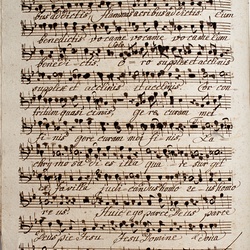 bus addictis, flammis acribus addictis, cum
benedictis voca me voca me voca me cum
bene dictis. Oro supplex et acclinis
supplex et acclinis et acclinis Cor con
tritum quasi cinis, gere curam mei
finis gere curam mei finis. La
chrymosa dies illa qua resurget
ex favilla judicandus homo reus homo
reus! Huic ergo parce Deus parce
Deus pie Jesu Jesu Domine dona